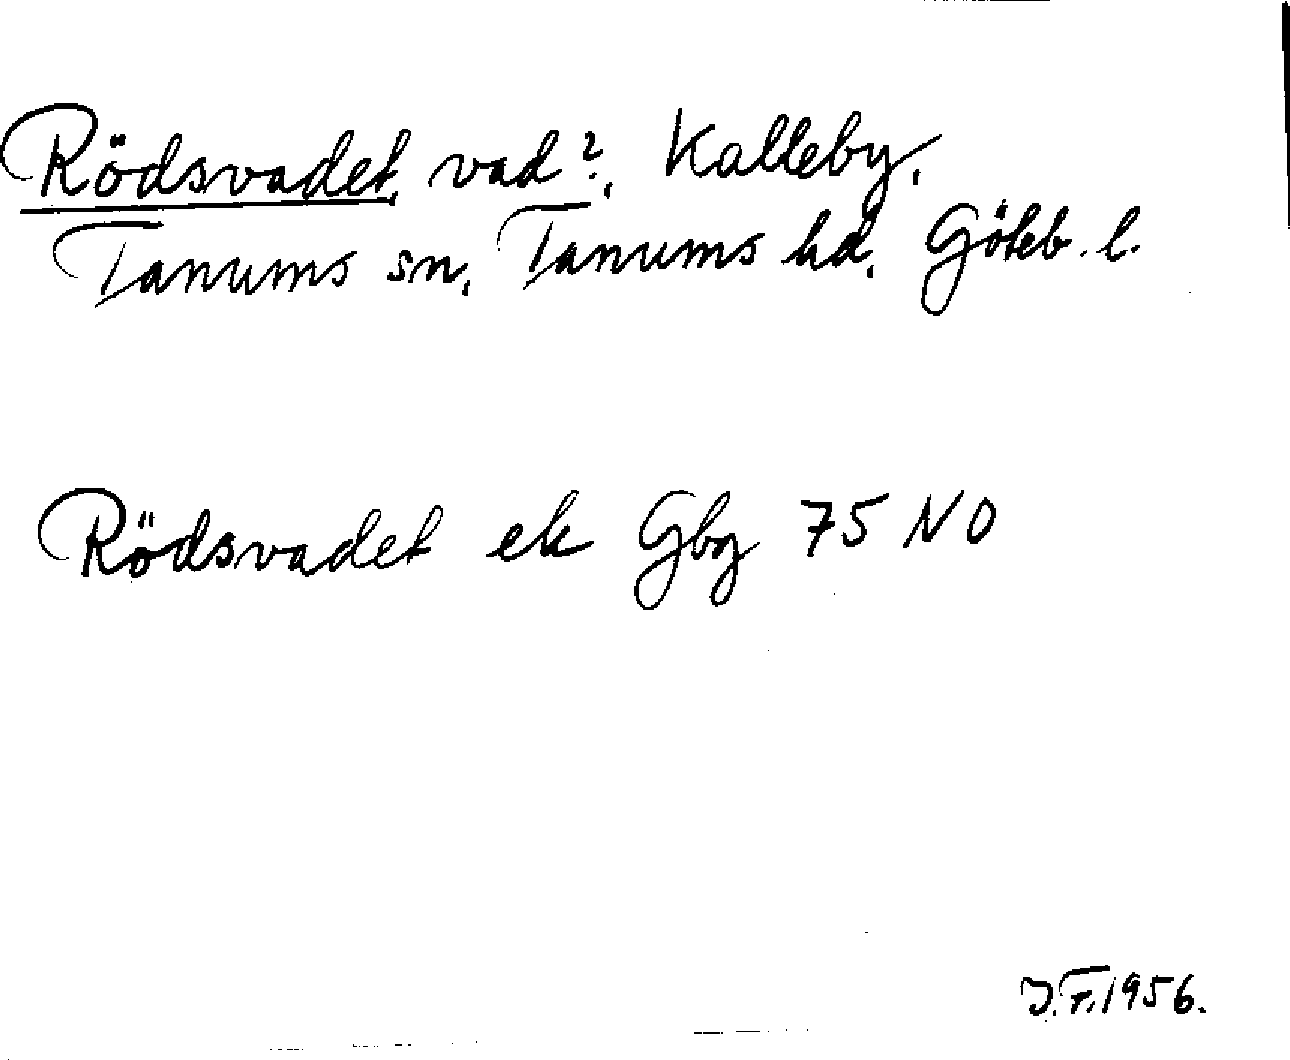 Rödsvadet, vad?, Kalleby,
Tanums sn, Tanums hd, Göteb. l.
Rödsvadet ek Gbg 75 NO
J.F. 1956.